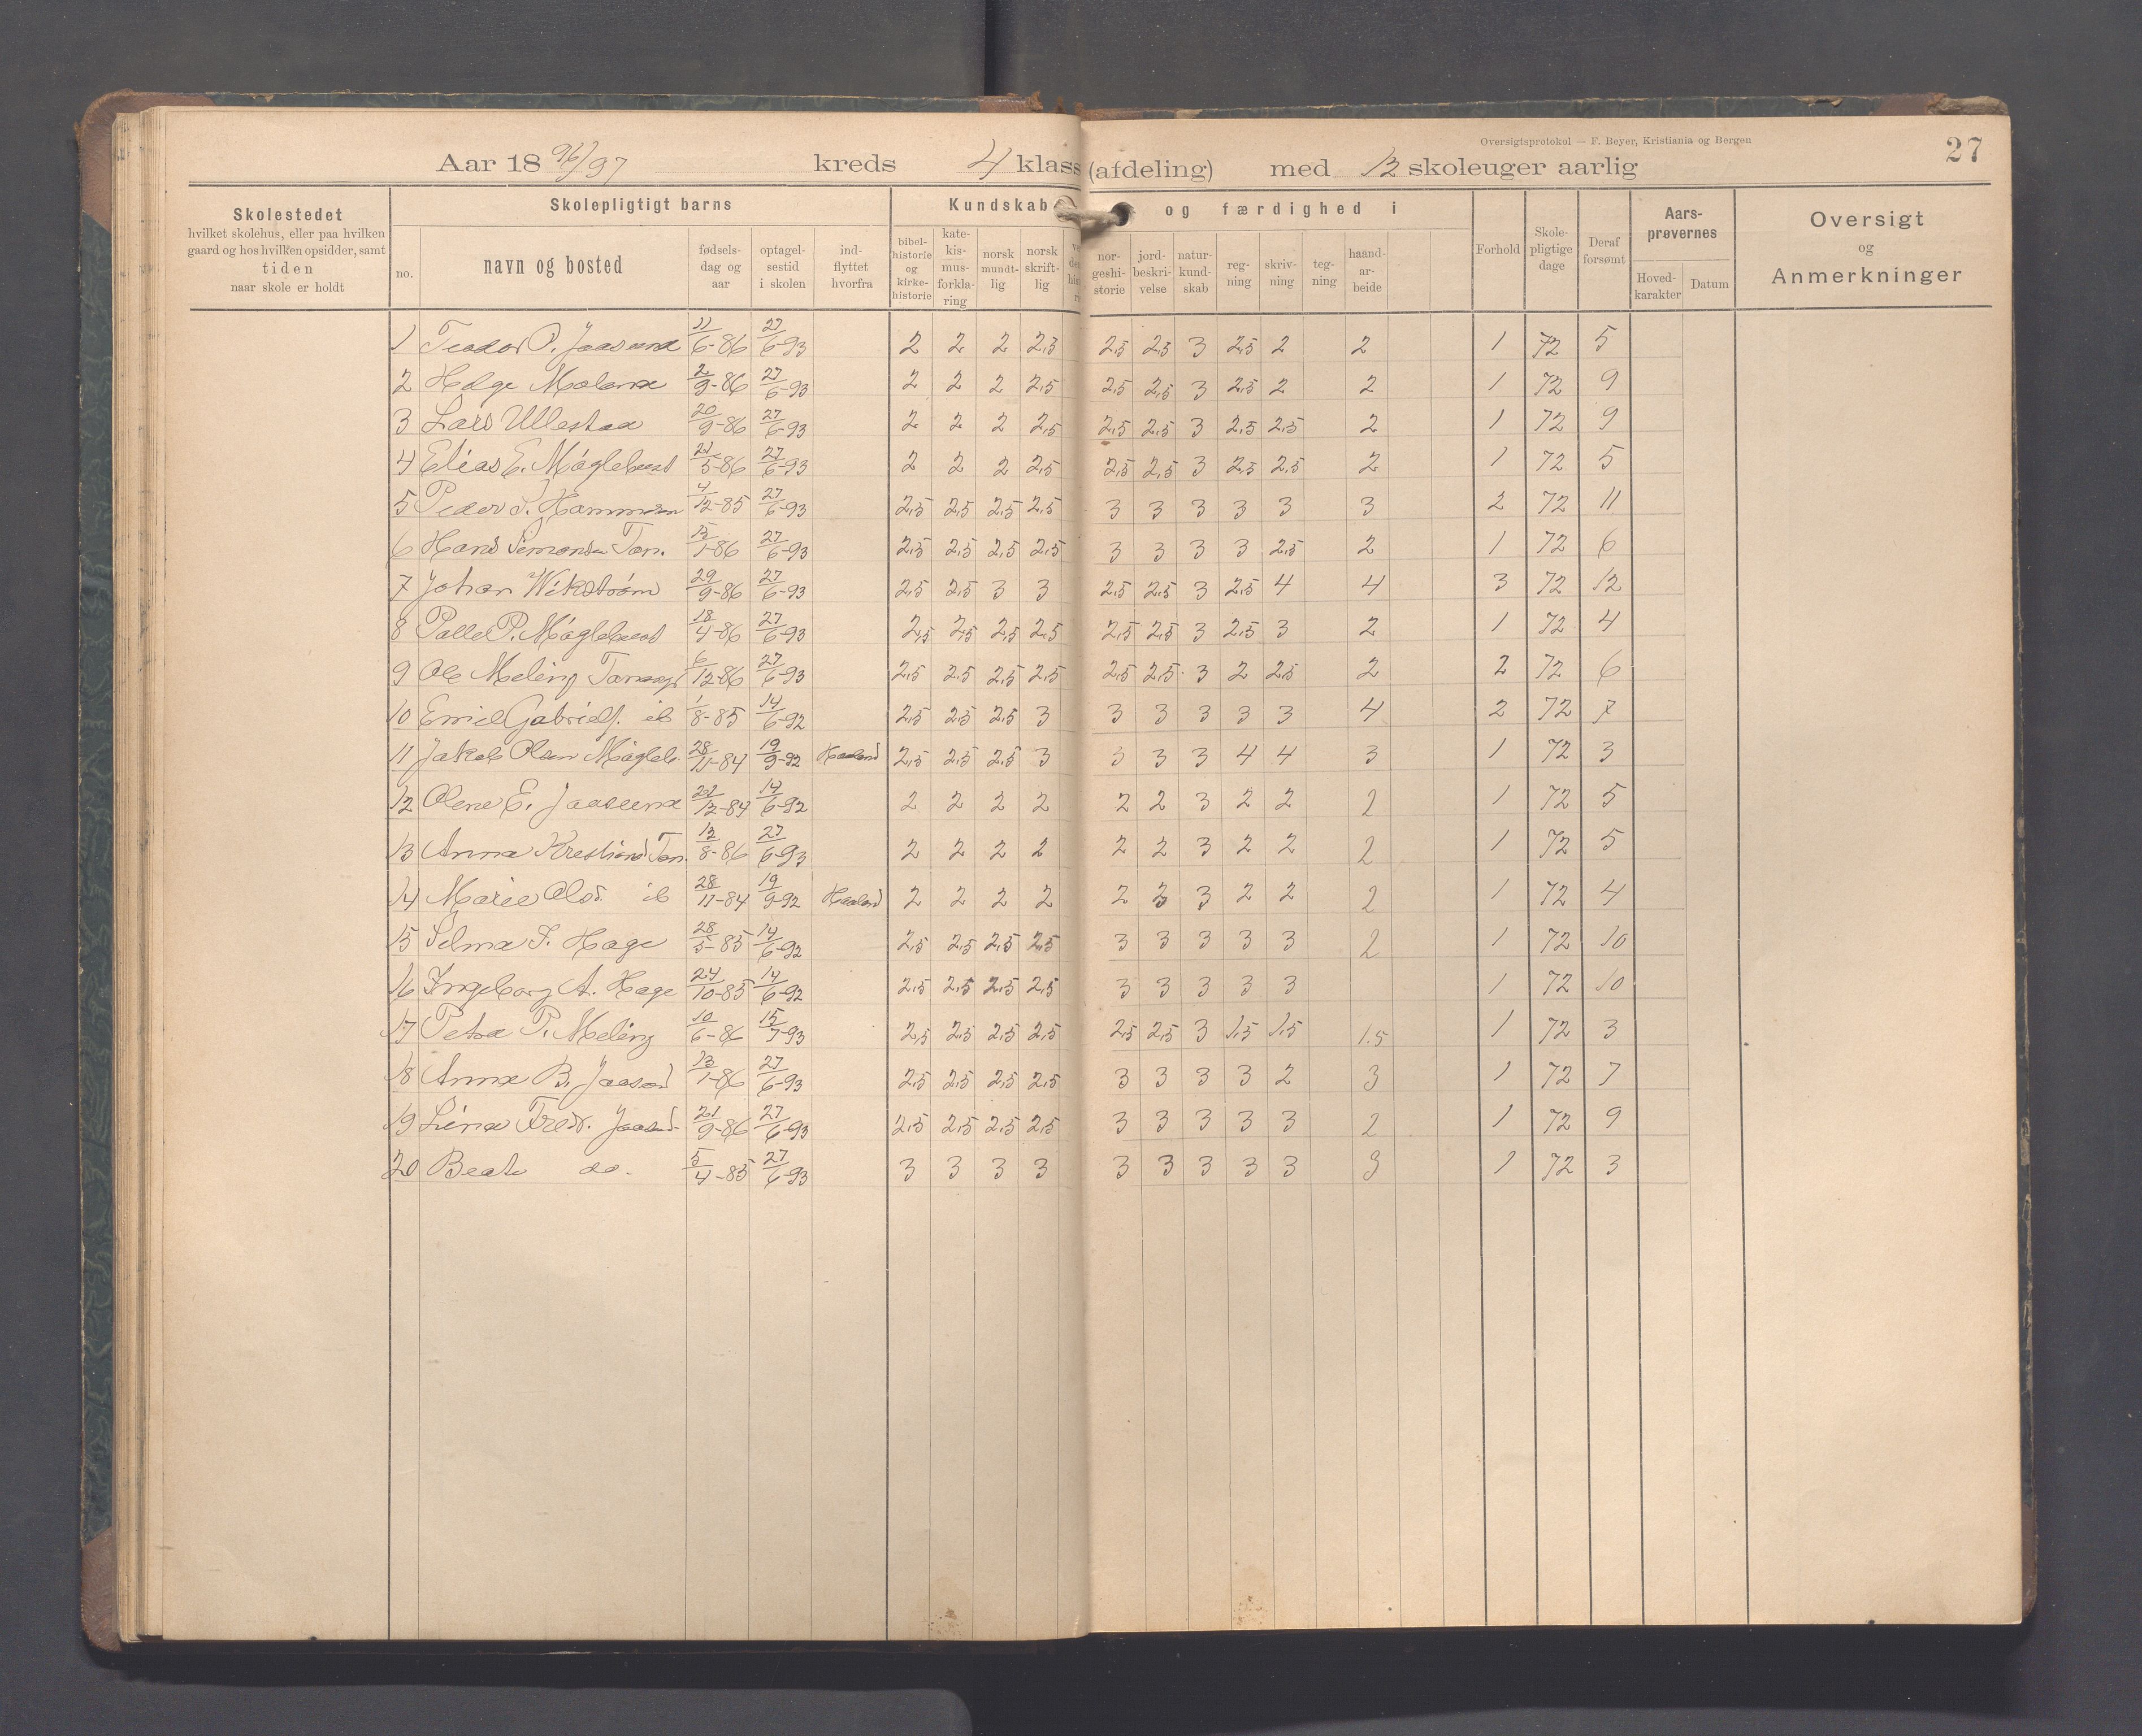 Oversigtsprotokol — F. Beyer, Kristiania og Bergen
27
Aar 18 96/97 kreds 4 klasse (afdeling) med 12 skoleuger aarlig
Skolestedet
hvilket skolehus, eller paa hvilken
gaard og hos hvilken opsidder, samt
tiden
naar skole er holdt
Skolepligtigt barns
no.
navn og bosted
fødsels-
dag og
aar
optagel-
sestid
i skolen
ind-
flyttet
hvorfra
Kundskab og færdighed i
bibel-
historie
og
kirke-
historie
kate-
kis-
mus-
forkla-
ring
norsk
mundt-
lig
norsk
skrift-
lig
nor-
geshi-
storie
jord-
beskri-
velse
natur-
kund-
skab
reg-
ning
skriv-
ning
teg-
ning
haand-
ar-
beide
Forhold
Skole-
pligtige
dage
Deraf
forsømt
Aars-
prøvernes
Hoved-
karakter
Datum
Oversigt
og
Anmerkninger
1 Teodor P. Jaasund 11/6-86 27/6-93 2 2 2 2,5 2,5 2,5 3 2,5 2 2 1 72 5
2 Helge Meland 2/9-86 27/6-93 2 2 2 2,5 2,5 2,5 3 2,5 2 2 1 72 9
3 Lars Ullestad 20/9-86 27/6-93 2 2 2 2,5 2,5 2,5 3 2,5 2,5 2 1 72 9
4 Elias E. 21/5-86 27/6-93 2 2 2 2,5 2,5 2,5 3 2,5 2,5 2 1 72 5
5 Peder S. 4/12-85 27/6-93 2,5 2,5 2,5 2,5 3 3 3 3 3 3 2 72 11
6 Hans Simonsen Tan. 15/1-86 27/6-93 2,5 2,5 2,5 2,5 3 3 3 3 2,5 2 1 72 6
7 Johan Wikstrøm 29/9-86 27/6-93 2,5 2,5 3 3 2,5 2,5 3 2,5 4 4 3 72 12
8 Palle P. 18/4-86 27/6-93 2,5 2,5 2,5 2,5 2,5 2,5 3 2,5 3 2 1 72 4
9 Ole Meling 6/12-86 27/6-93 2,5 2,5 2,5 2,5 2,5 2,5 3 2 2,5 2 2 72 6
10 Emil Gabriels. ib 1/8-85 14/6-92 2,5 2,5 2,5 3 3 3 3 3 3 4 2 72 7
11 Jakob Olsen Magleb. 28/11-84 19/9-92 Haaland 2,5 2,5 2,5 3 3 3 3 4 4 3 1 72 3
12 Olene E. Jaasund 21/12-84 14/6-92 2 2 2 2 2 2 3 2 2 2 1 72 5
13 Anna Kristians. Tan. 12/8-86 27/6-93 2 2 2 2 2 2 3 2 2 2 1 72 5
14 Marie Olsd. ib 28/11-84 19/9-92 Haaland 2 2 2 2 2 3 3 2 2 2 1 72 4
15 Selma F. Hage 28/5-85 14/6-92 2,5 2,5 2,5 2,5 3 3 3 3 3 2 1 72 10
16 Ingeborg A. Hage 24/10-85 14/6-92 2,5 2,5 2,5 2,5 3 3 3 3 3 1 72 10
17 Petra P. Meling 10/6-86 15/7-93 2,5 2,5 2,5 2,5 2,5 2,5 3 1,5 1,5 1.5 1 72 3
18 Anna B. Jaasund 13/1-86 27/6-93 2,5 2,5 2,5 2,5 3 3 3 3 2 3 1 72 7
19 Lina Fredr. Jaasund 21/9-86 27/6-93 2,5 2,5 2,5 2,5 3 3 3 3 3 2 1 72 9
20 Beate do. 5/4-85 27/6-93 3 3 3 3 3 3 3 3 3 3 1 72 3